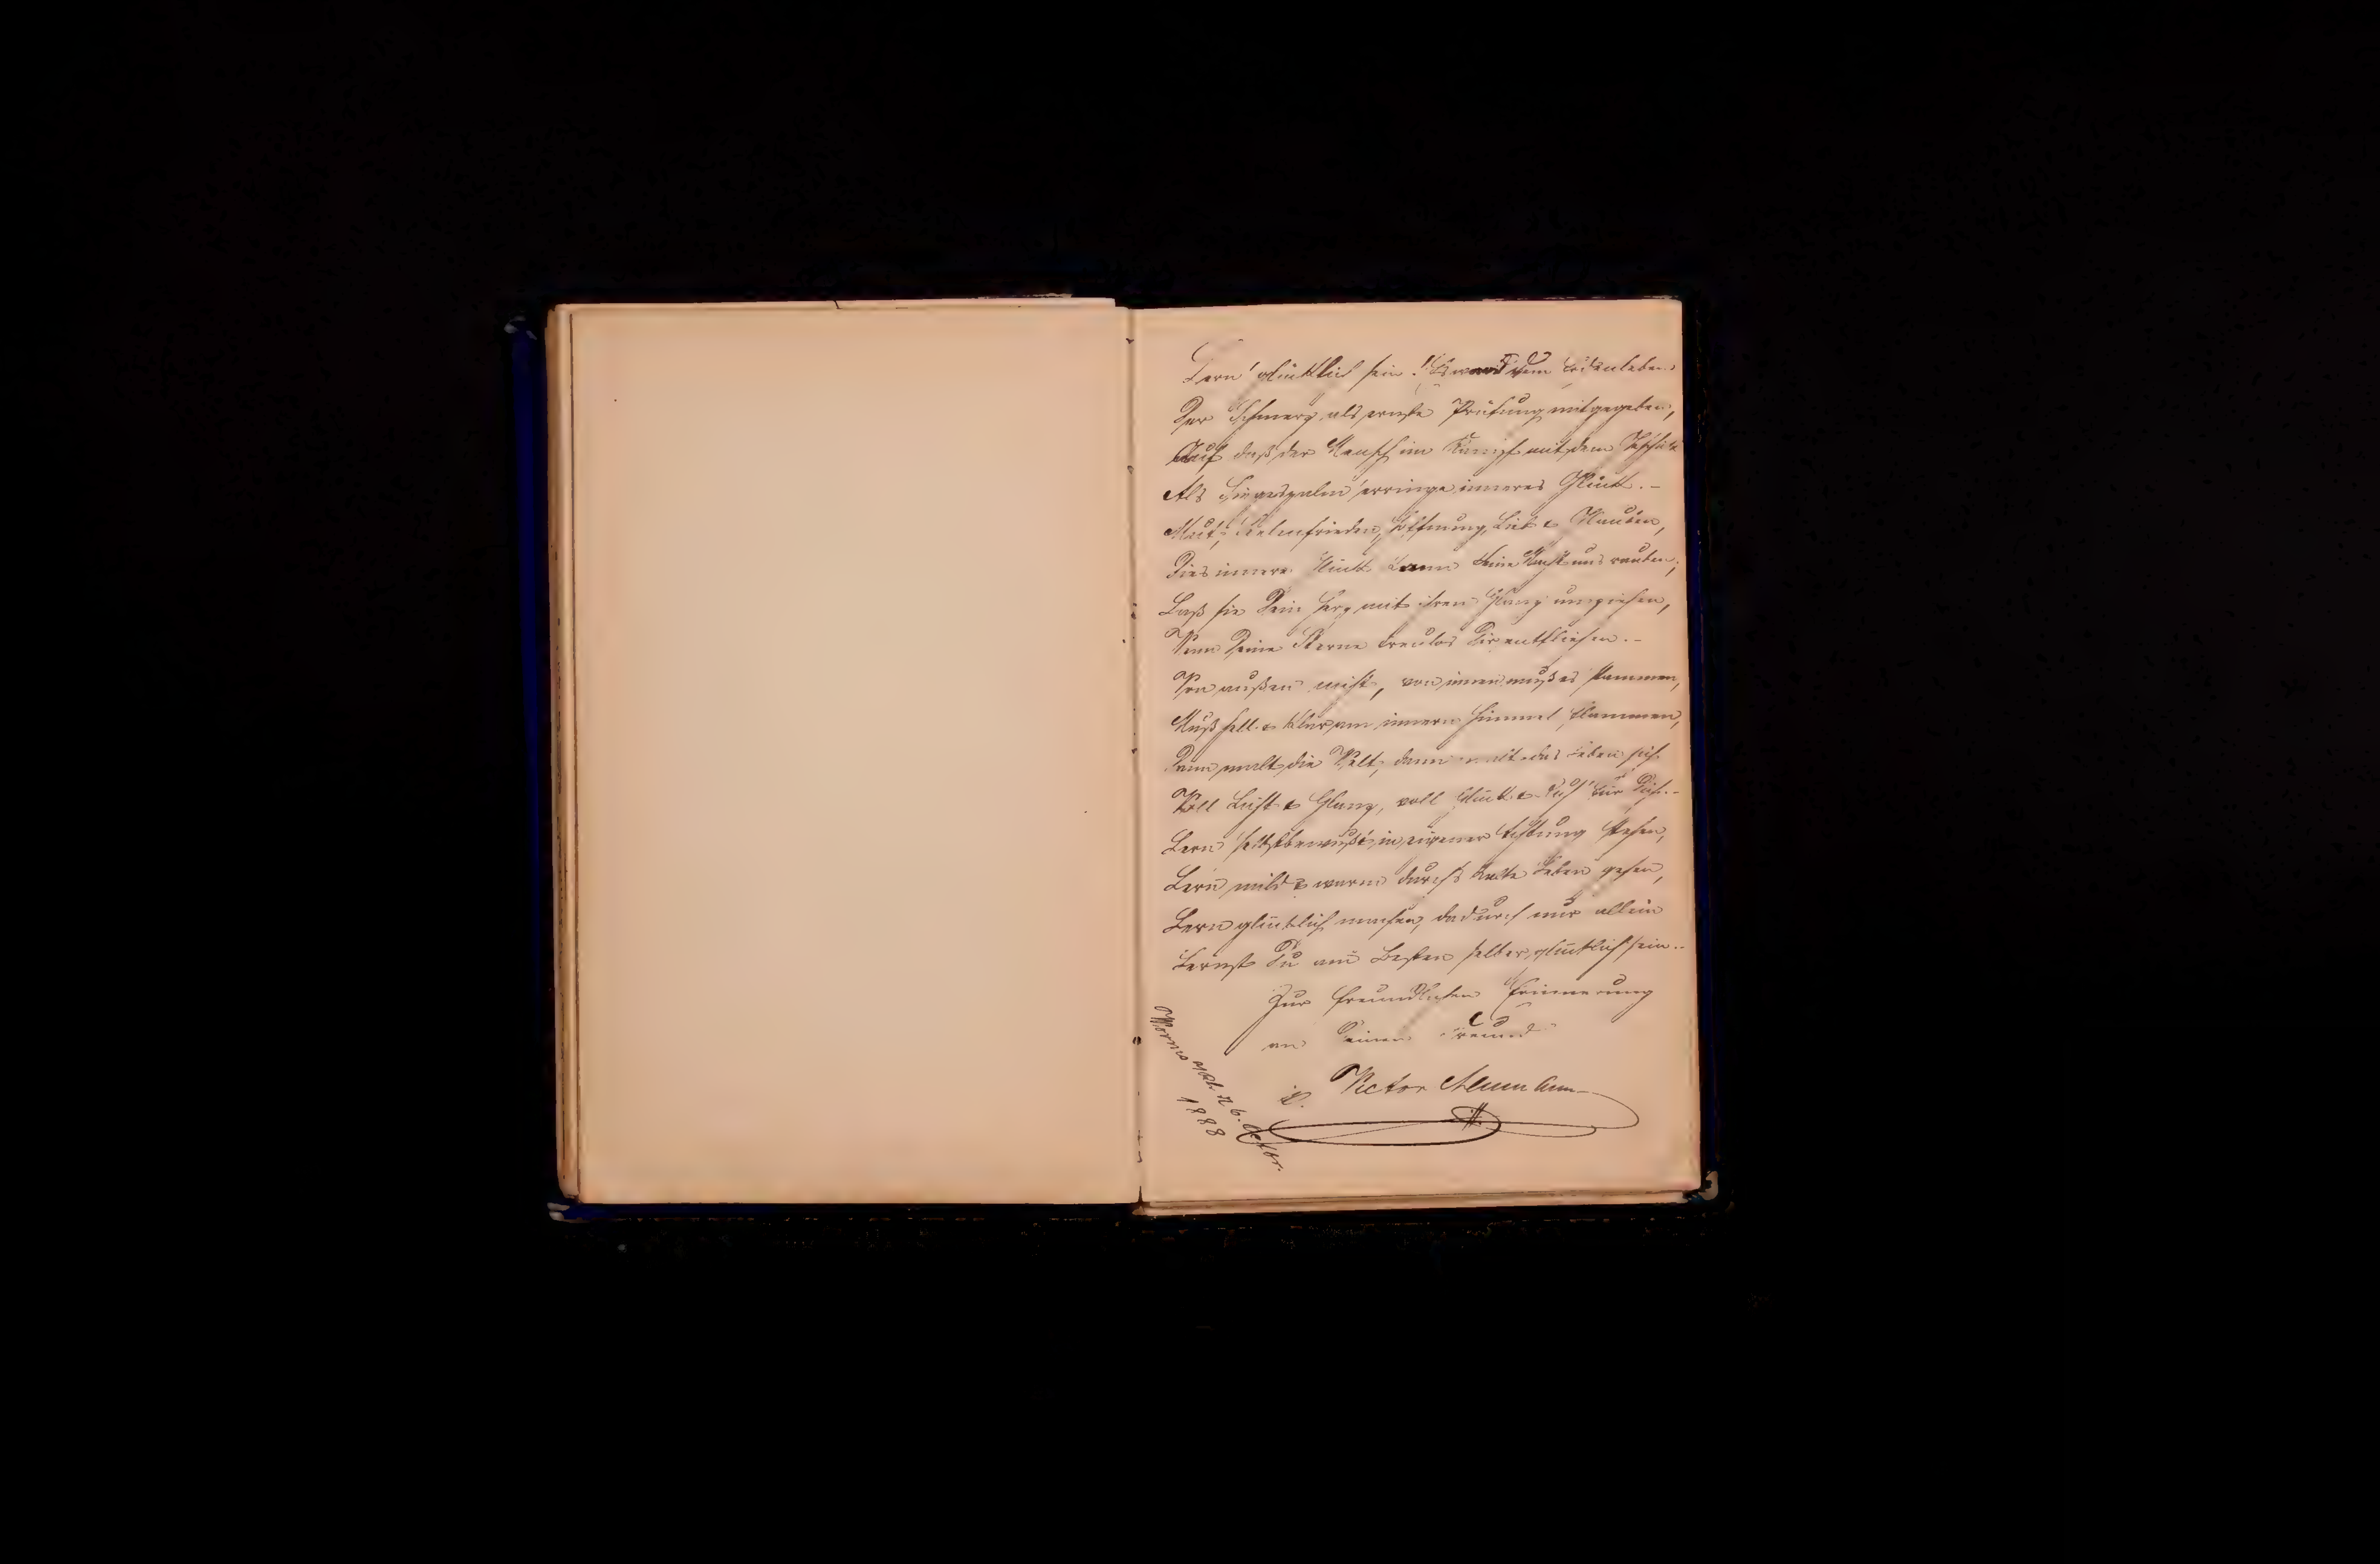 Lern' glücklich sein! Es ward dem Erdenleben
Der Schmerz als ernste Prüfung mitgegeben,
Auf daß der Mensch im Kampf mit dem Geschick
Als Siegespalm' erringe inneres Glück. -
Muth, Seelenfrieden, Hoffnung, Lieb & Glauben,
Dies innere Glück kann keine Macht uns rauben;
Laß sie Dein Herz mit ihrem Glanz umziehen,
Wenn Deine Sterne treulos Dir entfliehen. -
Von außen nicht, von innen muß es stammen,
Muß hell & klar am innern Himmel flammen,
Dann malt die Welt, dann malt das Leben sich
Voll Licht & Glanz, voll Glück & für Dich. -
Lern selbstbewußt in eigener Achtung stehen,
Lern mild & warm durch's kalte Leben gehen,
Lern glücklich machen, dadurch nur allein
Lernst Du am Besten selber glücklich sein. -
Zur freundlichen Erinnerung
an Deinen Freund
Victor
Worms 26. Octbr.
1888